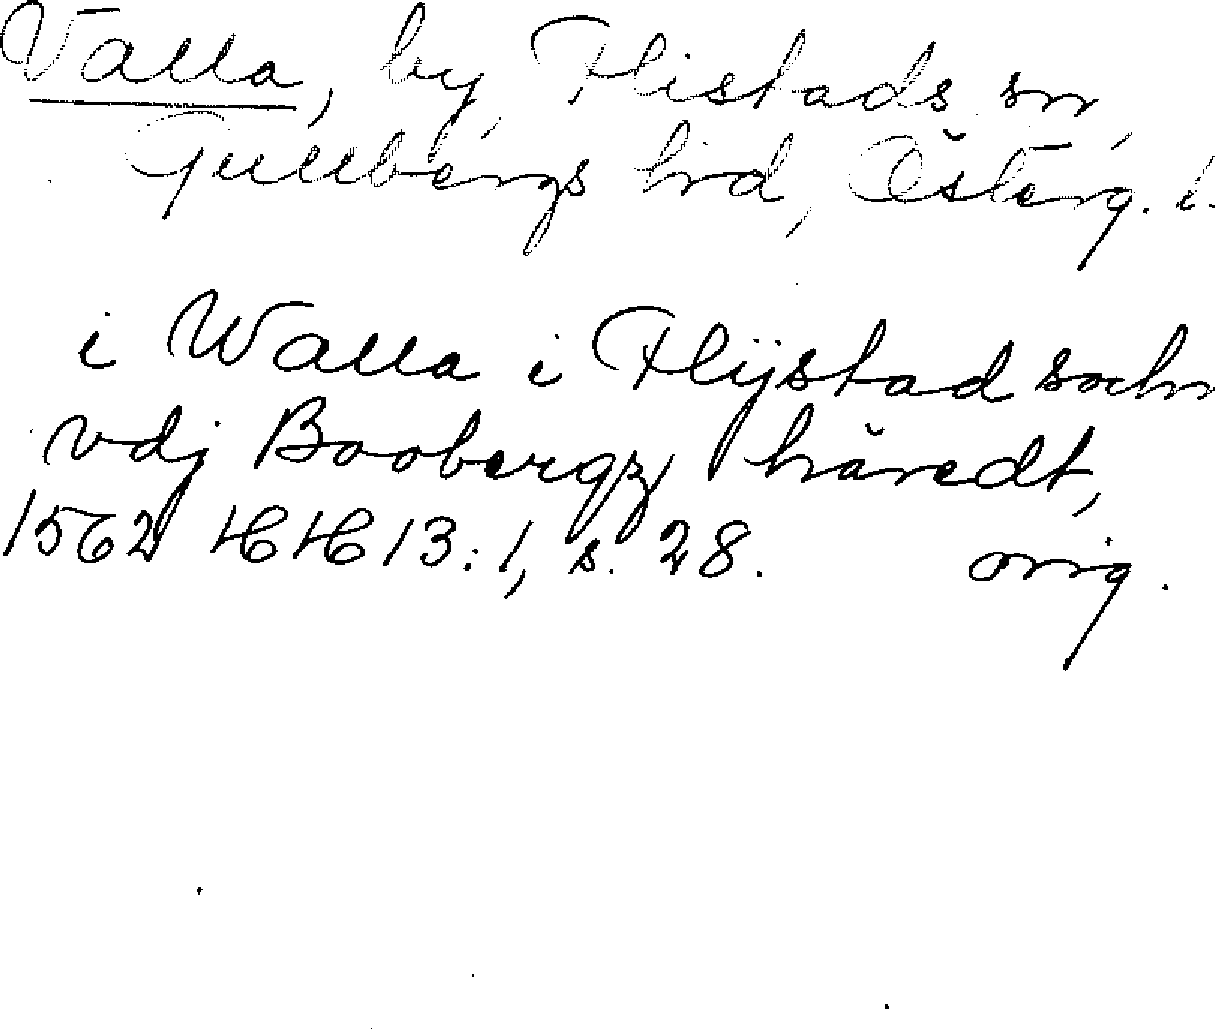 Valla, by, Flistads sn,
Gullbergs hrd, Österg. l.
i Walla i Flijstad sochn
vdj Boobergz häredt,
1562 HH 13:1, s. 28. orig.